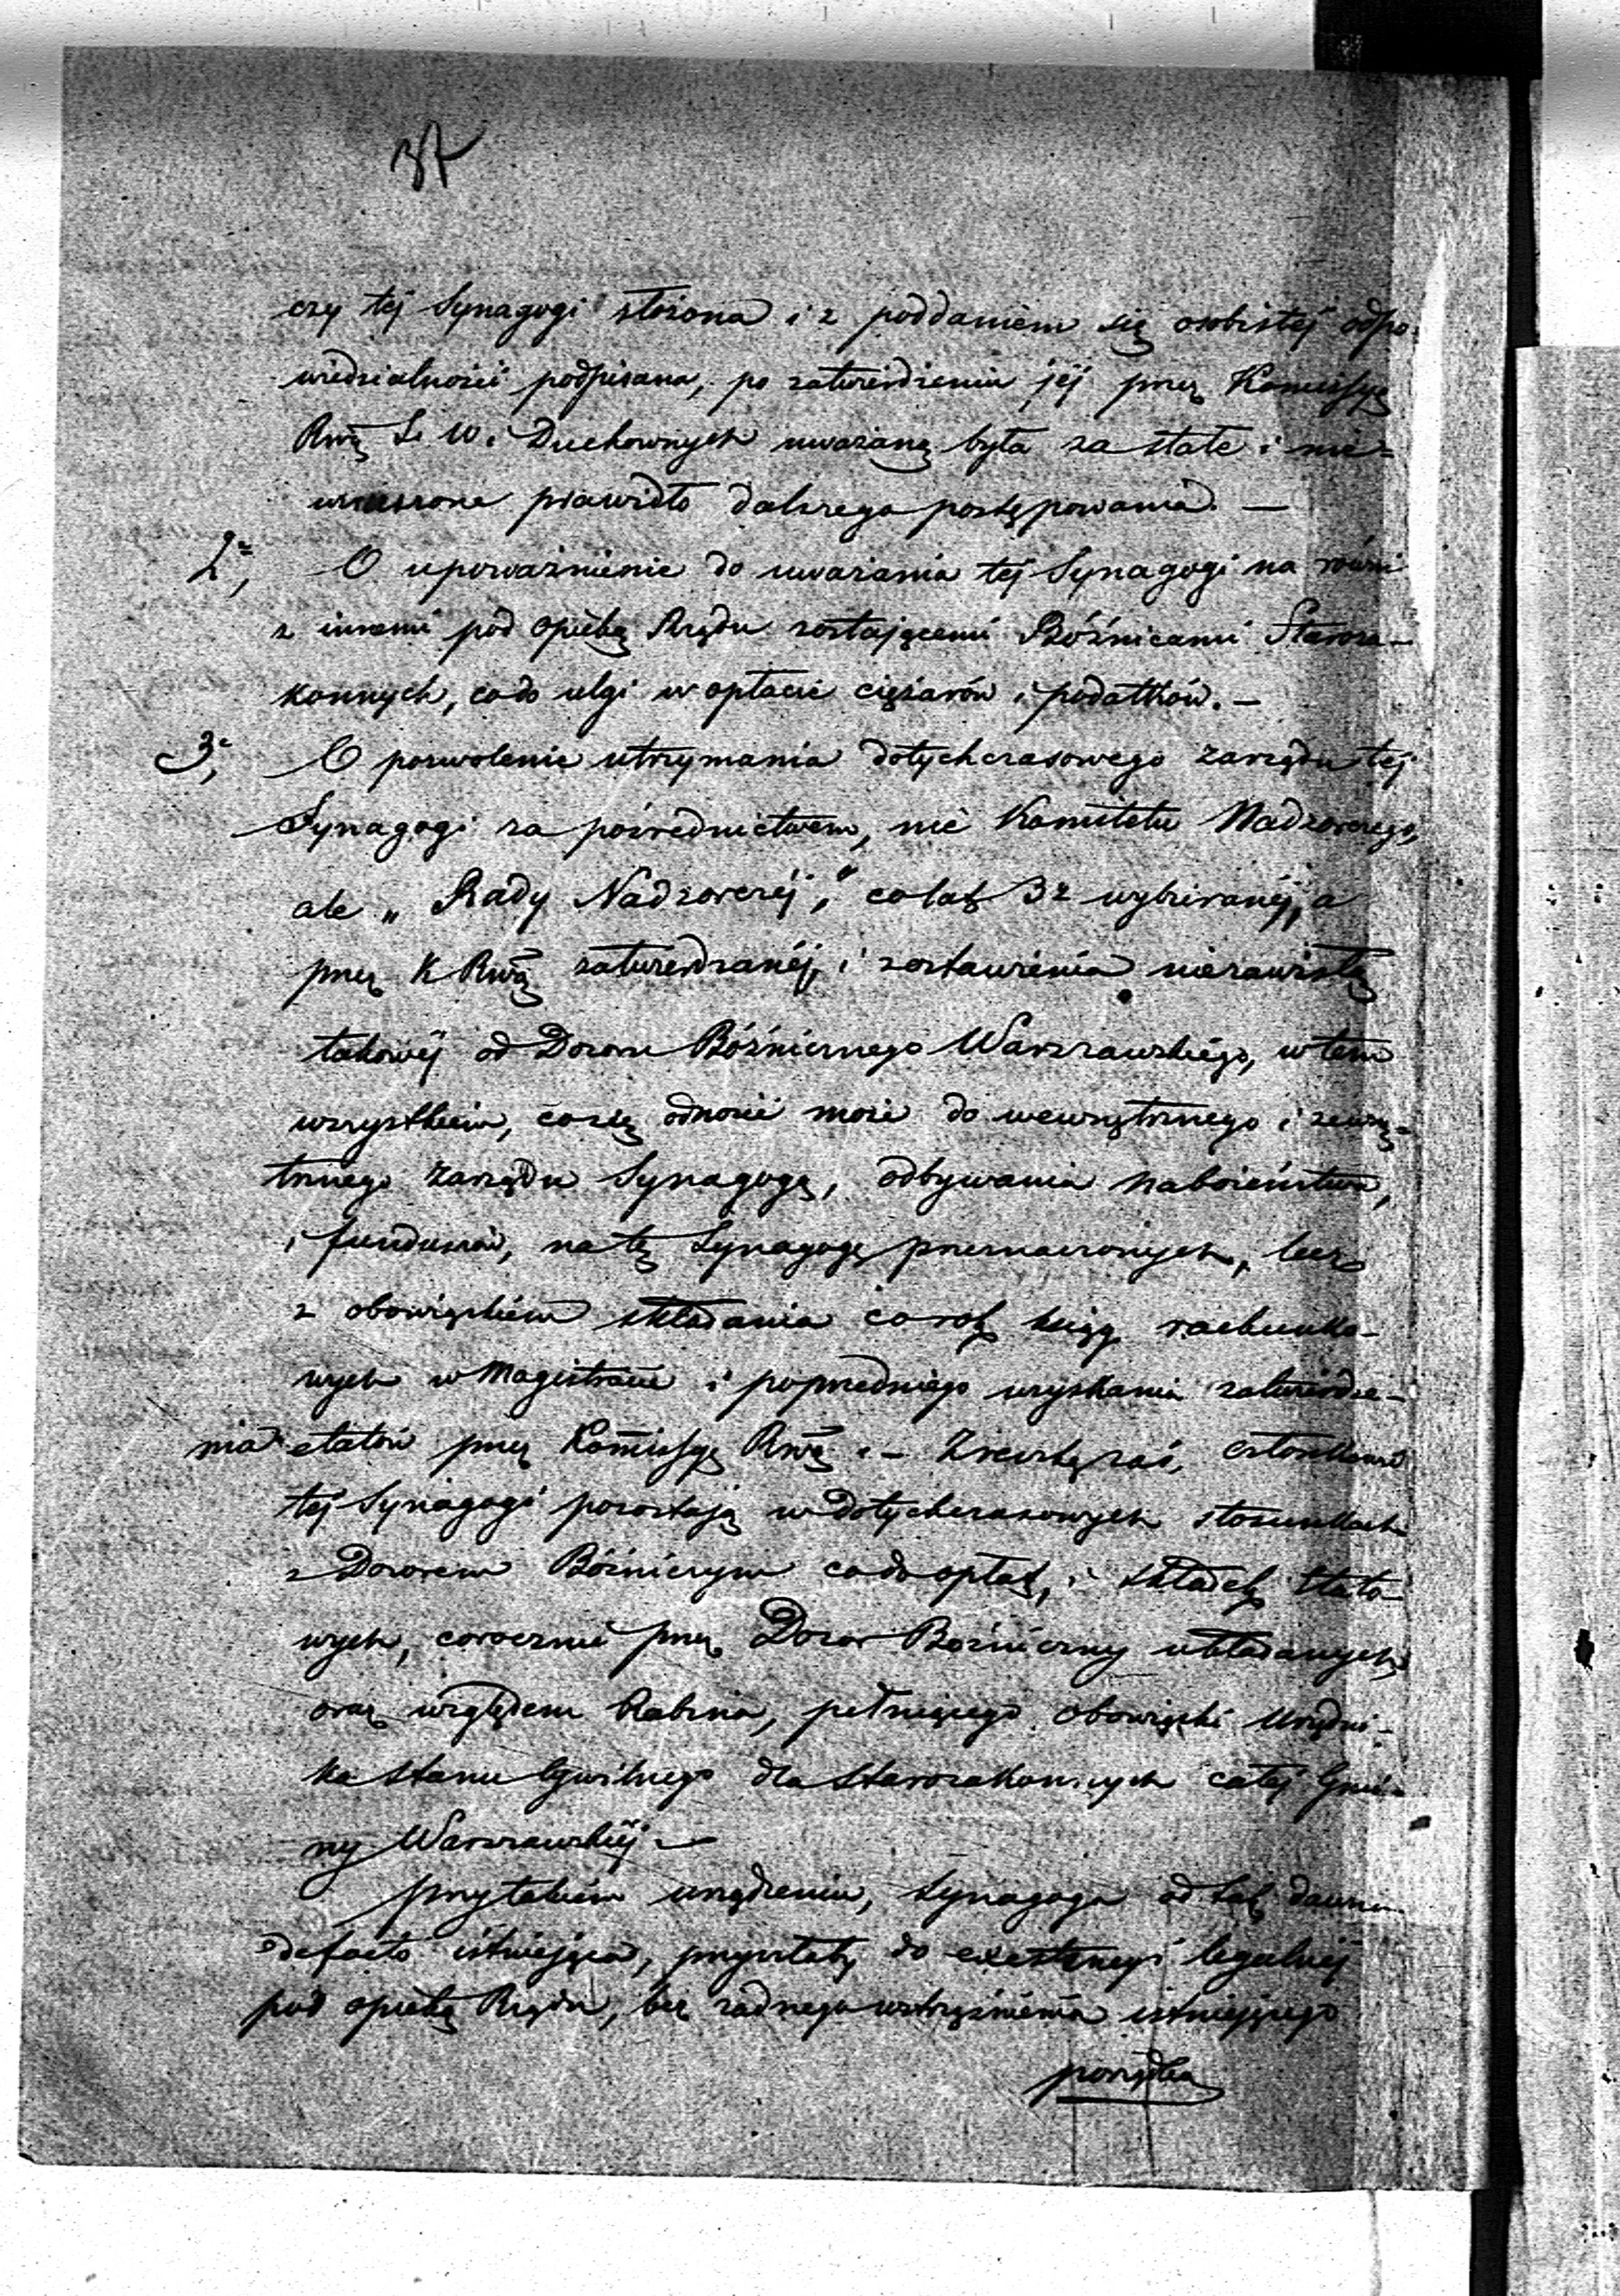 37
czy tej Synagogi złożona i z poddaniem się osobistej odpo-
wiedzialności podpisana, po zatwierdzeniu jéj przez Kommissyę
Rwą S. W. i Duchownych uważaną była za stałe i nie-
wzruszone prawidło dalszego postępowania. —
2e, O upoważnienie do uważania tej Synagogi na równi
z innemi pod opieką Rządu zostającemi Bóźnicami Staroza-
konnych, co do ulgi w opłacie ciężarów i podatków. —
3e, O pozwolenie utrzymania dotychczasowego zarządu tej
Synagogi za pośrednictwem, nie Komitetu Nadzorczego,
ale „Rady Nadzorczéj," co lat 3 wybieranéj, a
przez K Rwą zatwierdzanéj, i zostawienia niezawisłą
takowéj od Dozoru Bóźniczego Warszawskiego, w tem
wszystkiem, co się odnosić może do wewnętrznego i zewnę-
trznego Zarządu Synagogą, odbywania nabożeństwa,
i funduszów, na tę Synagogę przeznaczonych, lecz
z obowiązkiem składania co rok ksiąg rachunko-
wych w Magistracie i poprzedniego uzyskania zatwierdze-
nia etatów przez Kommissyę Rwą. — Zresztą zaś, członkowie
tej Synagogi pozostają w dotychczasowych stosunkach
z Dozorem Bóźniczym co do opłat, i składek etato
wych, corocznie przez Dozor Bożniczny układanych
oraz względem Rabina, pełniącego obowiązki Urzędni-
ka Stanu Cywilnego dla Starozakonnych całej Gmi-
ny Warszawskiéj —
Przy takiém urządzeniu, Synagoga od lat dawna
defacto istniejąca, przyszłaby do exystencyi legalnéj
pod opieką Rządu, bez żadnego wstrząśnienia istniejącego
porządku